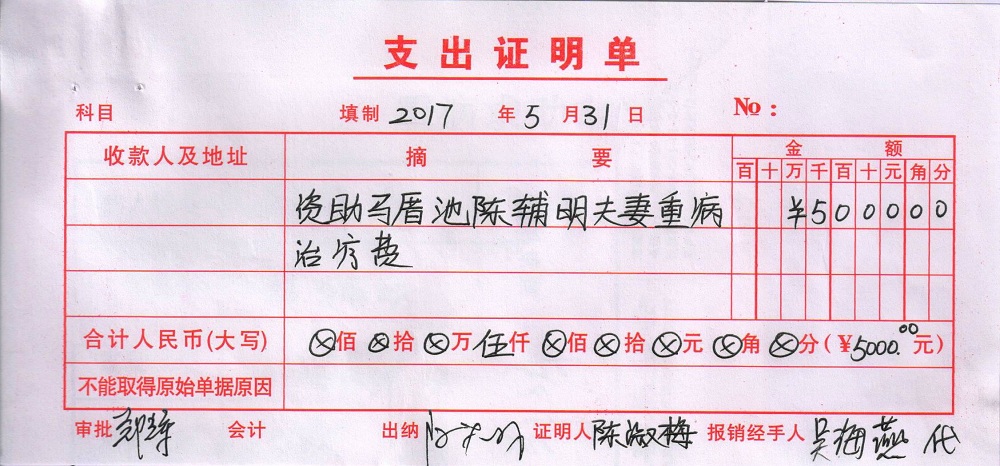 支出证明单
科目 填制 2017 年 5 月 31 日 №:
收款人及地址 摘要 金额
百 十 万 千 百 十 元 角 分
资助马厝池陈辅明夫妻重病 ¥500000
治疗费
合计人民币(大写) ⊗佰⊗拾⊗万伍仟⊗佰⊗拾⊗元⊗角⊗分(¥5000.00元)
不能取得原始单据原因
审批 会计 出纳 证明人 陈淑梅 报销经手人 吴海燕 代